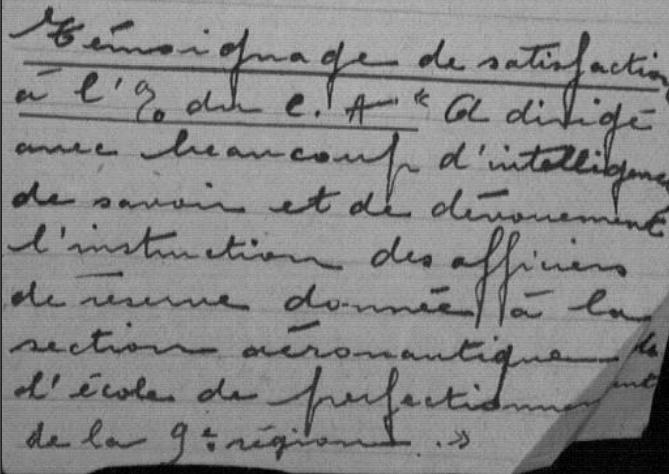 Témoignage de satisfaction
à l'O. du C. A "A dirigé
avec beaucoup d'intelligence
de savoir et de dévouement
l'instruction des officiers
de réserve donnée à la
section aéronautique de
d'école de perfectionnement
de la 9e région .»